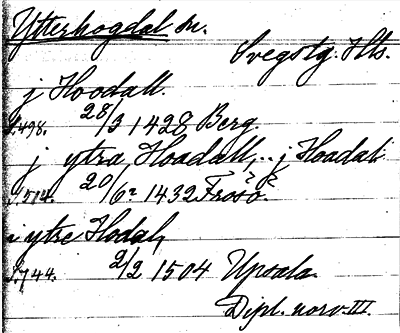 Ytterhogdal sn.
Svegstg. Hls.
j Hoodall.
S.498. 28/3 1428 Berg.
j ytra Hoadall, .. j Hoadal
S.514. 20/6 1432 Frösö.
i ytre Hodal,
S.744. 2/2 1504 Upsala
Dipl. norv. III.